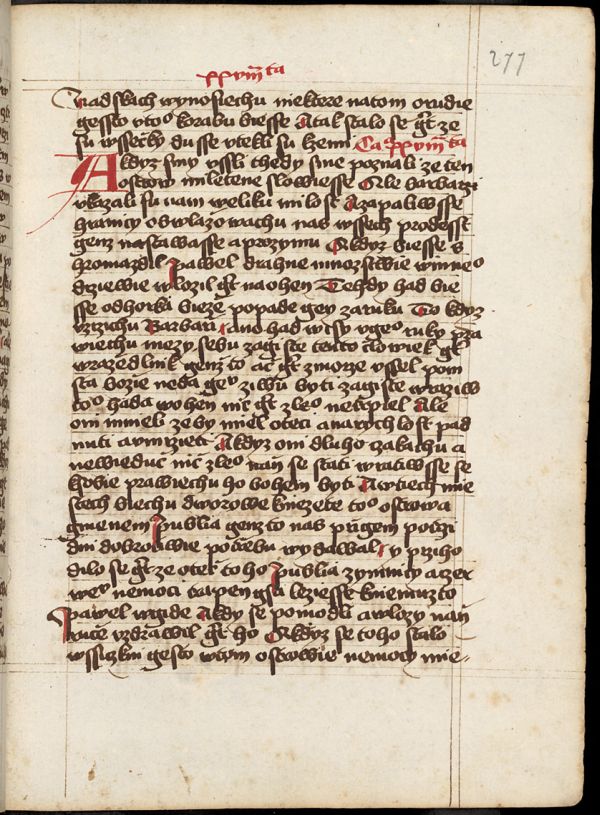 xxviii ta
277
nadskach wynosiechu niektere natom orudie
gessto vtoᵒ korabu biesse A tak stalo se gt̄ ze
su wssečky dusse vtekli su kzemi Ca xxviii ta
Akdyz smy vssli thedy sme poznali ze ten
ostrow miletene slowiesse Ale barbarzi
vkazali su nam weliku milost A zapaliwsse
hranicy obwlazowachu nas wssech prodesst
genz nastawasse a prozymu A kdyz biesse s
hromazdil pawel drahne mnozstwie winneᵒ
drziewie wlozil gt̄ naohen Tehdy had bie
sse odhorka bieze popade gey zaruku To kdyz
vzrzichu Barbari ano had wisy vgeᵒ ruky prza
wiechu mezy sebu zagiste tento člowiek gt̄
wrazedlnik genzto ač gt̄ zmorze vssel pom
sta bozie neda geᵒ ziwu byti zagiste wraziw
toᵒ hada wohen nic gt̄ zleᵒ netrpiel Ale
oni mnieli zeby miel oteci a narychlost pad
nuti a vmrzieti A kdyz oni dluho czakachu a
newieduc nic zleᵒ nan se stati wratiwsse se
ksobie prawiechu ho bohem byti A wtiech mie
stech biechu dworowe kniezete toᵒ ostrowa
gmenem publia genzto nas prigem po trzi
dni dobrotiwie potrzebu wydawal y prziho
dilo se gt̄ ze otec toho publia zymnicy a czer
weᵒ nemoci trapen gsa leziesse kniemuzto
pawel wgide A kdy se pomodli a wlozy nan
ruce vzdrawil gt̄ ho A kdyz se toho stalo
wssiczkni gesto wtom ostrowie nemocy mie-